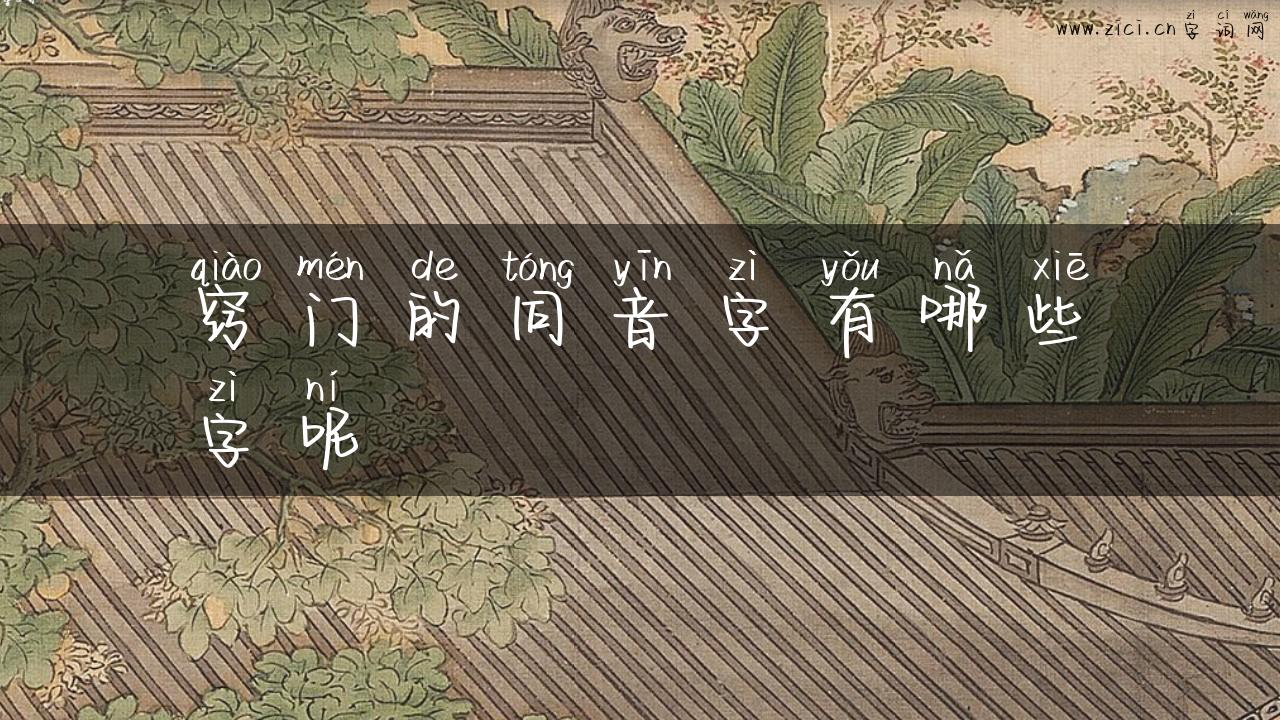 zì cí wǎng
www.zici.cn 字词网
qiào mén de tóng yīn zì yǒu nǎ xiē
窍门的同音字有哪些
zì ní
字呢